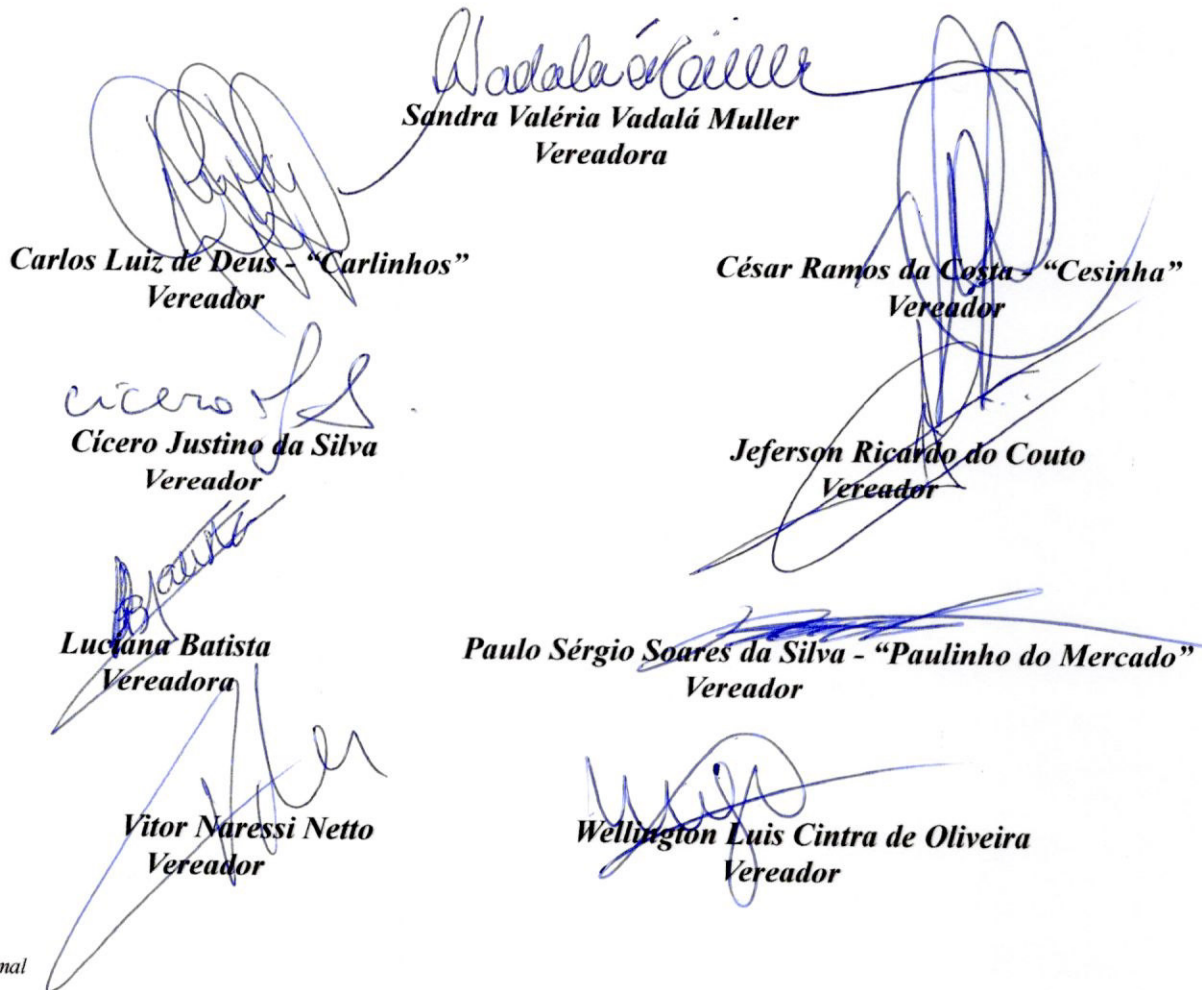 Vadalá Muller
Sandra Valéria Vadalá Muller
Vereadora
Carlos Luiz de Deus - “Carlinhos”
Vereador
César Ramos da Costa - “Cesinha”
Vereador
cícero
Cícero Justino da Silva
Vereador
Jeferson Ricardo do Couto
Vereador
Luciana Batista
Vereadora
Paulo Sérgio Soares da Silva - “Paulinho do Mercado”
Vereador
Vitor Naressi Netto
Vereador
Wellington Luis Cintra de Oliveira
Vereador